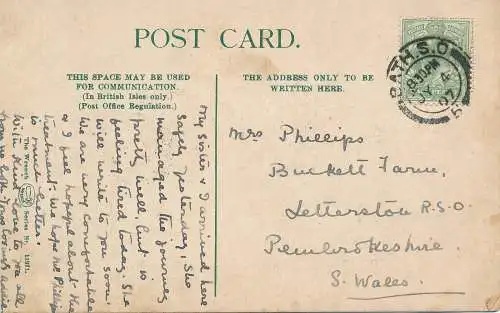 POST CARD.
THIS SPACE MAY BE USED
FOR COMMUNICATION.
(In British Isles only.)
(Post Office Regulation.)
THE ADDRESS ONLY TO BE
WRITTEN HERE.
BATH.S.O
MY 4
07
Mrs Phillips
Buckett Farm,
Letterston R.S.O.
Pembrokeshire.
S. Wales.
My Sister & I arrived here
safely yesterday, She
managed the journey
pretty well, but is
feeling tired today. She
will write to you soon.
We are very comfortable
& I feel hopeful about the
treatment: We hope Mr Phillips
is much better.
With kind love to you all
from us both
The Wrench Series No.